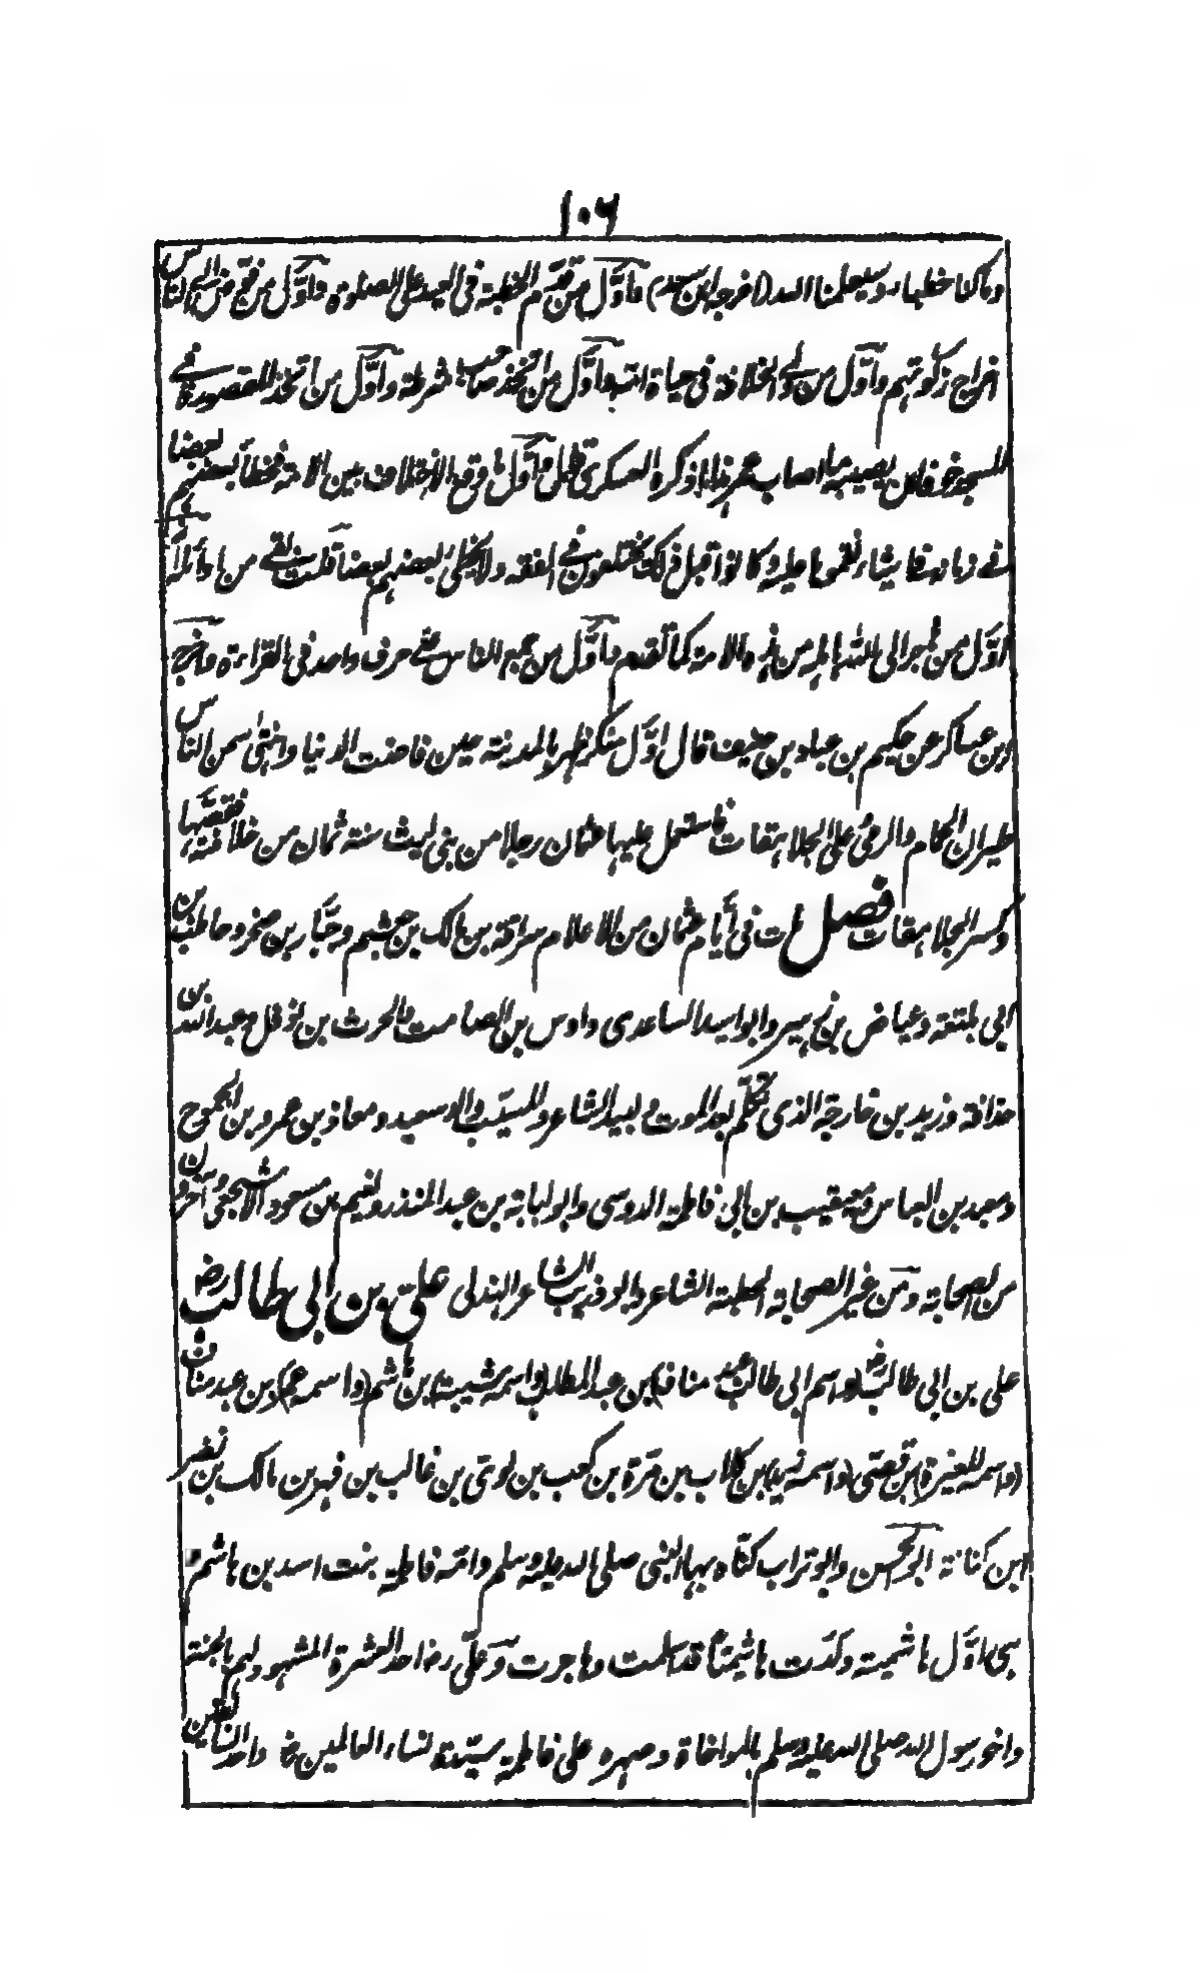 ١٠٦
وما كنا خطباء وسيعلمنا الله (اخرجه ابن سعد) واوّل من قدّم الخطبة فى العيد على الصلوة واوّل من فوّض الى الناس
اخراج زكوتهم واوّل من ولى الخلافة فى حياة امه واوّل من اتخذ صاحب شرطة واوّل من اتخذ المقصورة فى
المسجد خوفا ان يصيبه ما اصاب عمر هذا ما ذكره العسكرى قال واوّل ما وقع الاختلاف بين الامة فخطأ بعضهم بعضا
فى زمانه فى اشياء نقموها عليه وكانوا قبل ذلك يختلفون فى الفقه ولا يخطئ بعضهم بعضا قلت بقى من اوائله انه
اوّل من هاجر الى الله باهله من هذه الامة كما تقدم واوّل من جمع الناس على حرف واحد فى القراءة واخرج
ابن عساكر عن حكيم بن عباد بن حنيف قال اوّل منكر ظهر بالمدينة حين فاضت الدنيا وانتهى سمن الناس
طيران الحمام والرمى على الجلاهقات فاستعمل عليها عثمان رجلا من بنى ليث سنة ثمان من خلافته فقصّها
وكسر الجلاهقات فصل مات فى أيام عثمان من الاعلام سراقة بن مالك بن جعشم وجبّار بن صخر وحاطب بن
ابى بلتعة وعياض بن زهير وابو اسيد الساعدى واوس بن الصامت والحرث بن نوفل وعبد الله بن
حذافة وزيد بن خارجة الذى تكلّم بعد الموت ولبيد الشاعر والمسيّب والد سعيد ومعاذ بن عمرو بن الجموح
ومعبد بن العباس ومعيقيب بن ابى فاطمة الدوسى وابو لبابة بن عبد المنذر ونعيم بن مسعود الاشجعى وآخرون
من الصحابة ومن غير الصحابة الحطيئة الشاعر وابو ذويب الشاعر الهذلى على بن ابى طالب رض
على بن ابى طالب رض (واسم ابى طالب عبد مناف) بن عبد المطلب (واسمه شيبة) بن هاشم (واسمه عمرو) بن عبد مناف
(واسمه المغيرة) بن قصىّ (واسمه زيد) بن كلاب بن مرّة بن كعب بن لوىّ بن غالب بن فهر بن مالك بن نضر
ابن كنانة ابو الحسن وابو تراب كنّاه بها النبى صلى الله عليه وسلم وامّه فاطمة بنت اسد بن هاشم
هى اوّل هاشمية ولدت هاشميّا قد اسلمت وهاجرت وعلىّ رض احد العشرة المشهود لهم بالجنة
واخو رسول الله صلى الله عليه وسلم بالمواخاة وصهره على فاطمة سيّدة نساء العالمين رض واحد السابقين